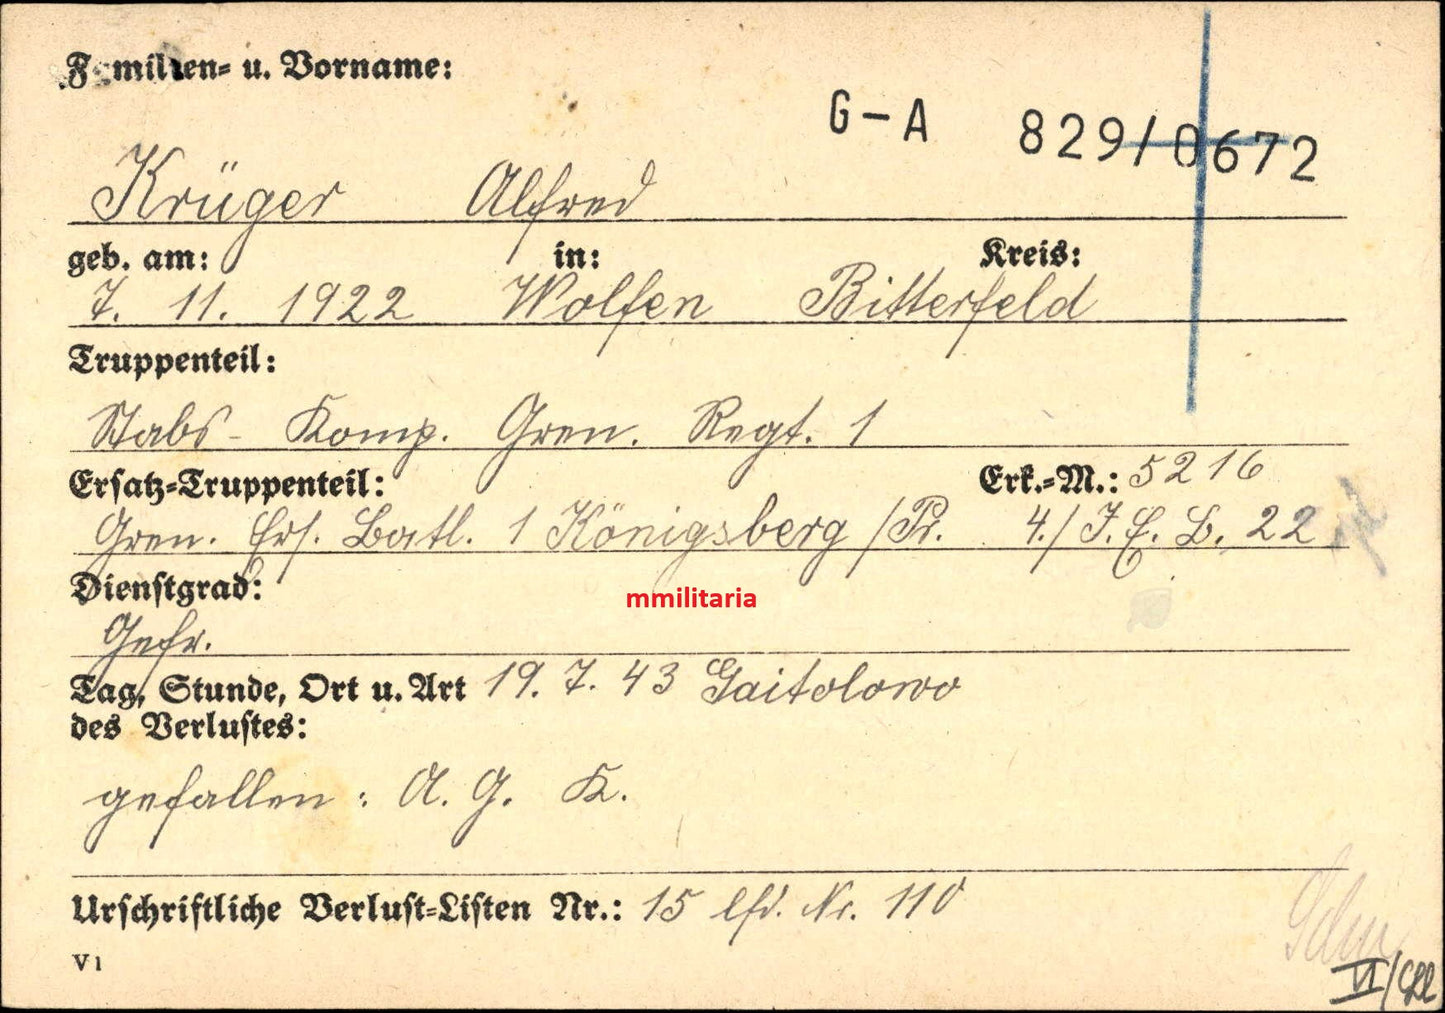 Familien= u. Vorname:
G-A 829/0672
Krüger Alfred
geb. am: in: Kreis:
7. 11. 1922 Wolfen Bitterfeld
Truppenteil:
Stabs- Komp. Gren. Regt. 1
Ersatz=Truppenteil: Erk.=M.: 5216
Gren. Ers. Batl. 1 Königsberg /Pr. 4./ J. E. B. 22
Dienstgrad:
mmilitaria
Gefr.
Tag, Stunde, Ort u. Art 19. 7. 43 Gaitolowo
des Verlustes:
gefallen: A. G. K.
Urschriftliche Verlust=Listen Nr.: 15 lfd. Nr. 110
V1
VI/